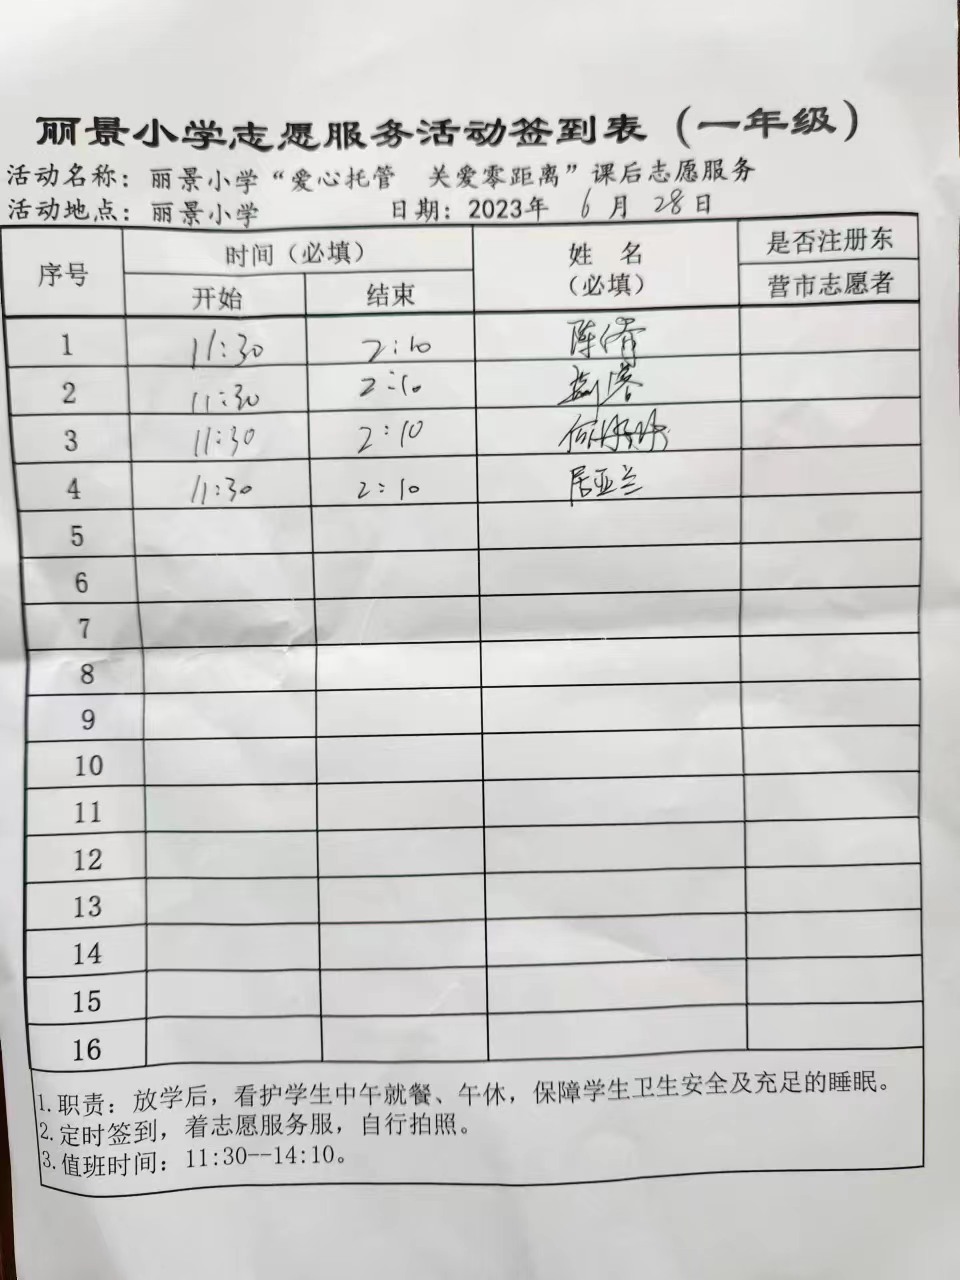 丽景小学志愿服务活动签到表（一年级）
活动名称：丽景小学“爱心托管 关爱零距离”课后志愿服务
活动地点：丽景小学 日期：2023年 6月 28日
序号 时间（必填） 姓 名 （必填） 是否注册东
开始 结束 营市志愿者
1 11:30 2:10 陈倩
2 11:30 2:10
3 11:30 2:10 何
4 11:30 2:10 居亚兰
5
6
7
8
9
10
11
12
13
14
15
16
1.职责：放学后，看护学生中午就餐、午休，保障学生卫生安全及充足的睡眠。
2.定时签到，着志愿服务服，自行拍照。
3.值班时间：11:30--14:10。